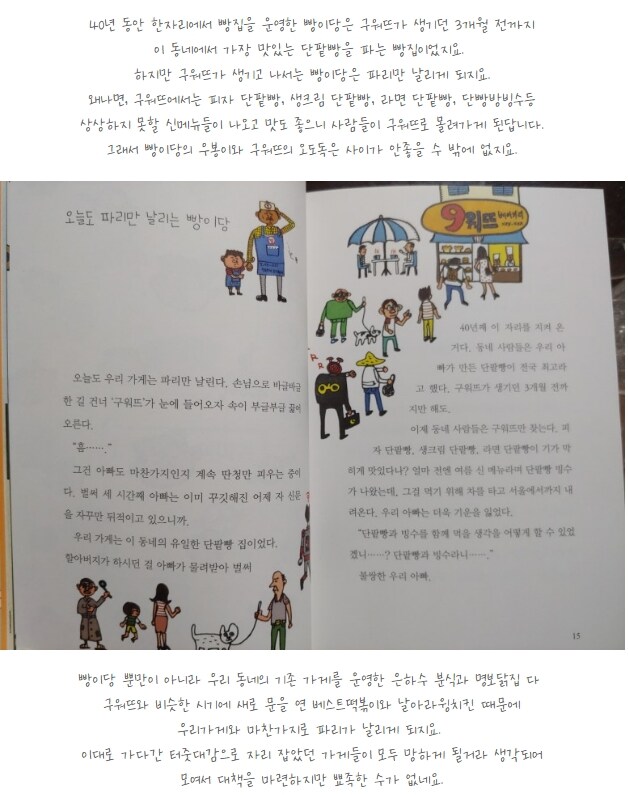 40년 동안 한자리에서 빵집을 운영한 빵이당은 구워뜨가 생기던 3개월 전까지
이 동네에서 가장 맛있는 단팥빵을 파는 빵집이었지요.
하지만 구워뜨가 생기고 나서는 빵이당은 파리만 날리게 되지요.
왜냐면, 구워뜨에서는 피자 단팥빵, 생크림 단팥빵, 라면 단팥빵, 단빵방빙수등
상상하지 못할 신메뉴들이 나오고 맛도 좋으니 사람들이 구워뜨로 몰려가게 된답니다.
그래서 빵이당의 우봉이와 구워뜨의 오도독은 사이가 안좋을 수 밖에 없지요.
오늘도 파리만 날리는 빵이당
오늘도 우리 가게는 파리만 날린다. 손님으로 바글바글
한 길 건너 '구워뜨'가 눈에 들어오자 속이 부글부글 끓어
오른다.
"흠……."
그건 아빠도 마찬가지인지 계속 딴청만 피우는 중이
다. 벌써 세 시간째 아빠는 이미 꾸깃해진 어제 자 신문
을 자꾸만 뒤적이고 있으니까.
우리 가게는 이 동네의 유일한 단팥빵 집이었다.
할아버지가 하시던 걸 아빠가 물려받아 벌써
9워뜨
40년째 이 자리를 지켜 온
거다. 동네 사람들은 우리 아
빠가 만든 단팥빵이 전국 최고라
고 했다. 구워뜨가 생기던 3개월 전까
지만 해도.
이제 동네 사람들은 구워뜨만 찾는다. 피
자 단팥빵, 생크림 단팥빵, 라면 단팥빵이 기가 막
하게 맛있다나? 얼마 전엔 여름 신 메뉴라며 단팥빵 빙수
가 나왔는데, 그걸 먹기 위해 차를 타고 서울에서까지 내
려온다. 우리 아빠는 더욱 기운을 잃었다.
"단팥빵과 빙수를 함께 먹을 생각을 어떻게 할 수 있었
겠니……? 단팥빵과 빙수라니……."
불쌍한 우리 아빠.
15
빵이당 뿐만이 아니라 우리 동네의 기존 가게를 운영한 은하수 분식과 명보닭집 다
구워뜨와 비슷한 시기에 새로 문을 연 베스트떡볶이와 날아라윙치킨 때문에
우리가게와 마찬가지로 파리가 날리게 되지요.
이대로 가다간 터줏대감으로 자리 잡았던 가게들이 모두 망하게 될거라 생각되어
모여서 대책을 마련하지만 뾰족한 수가 없네요.